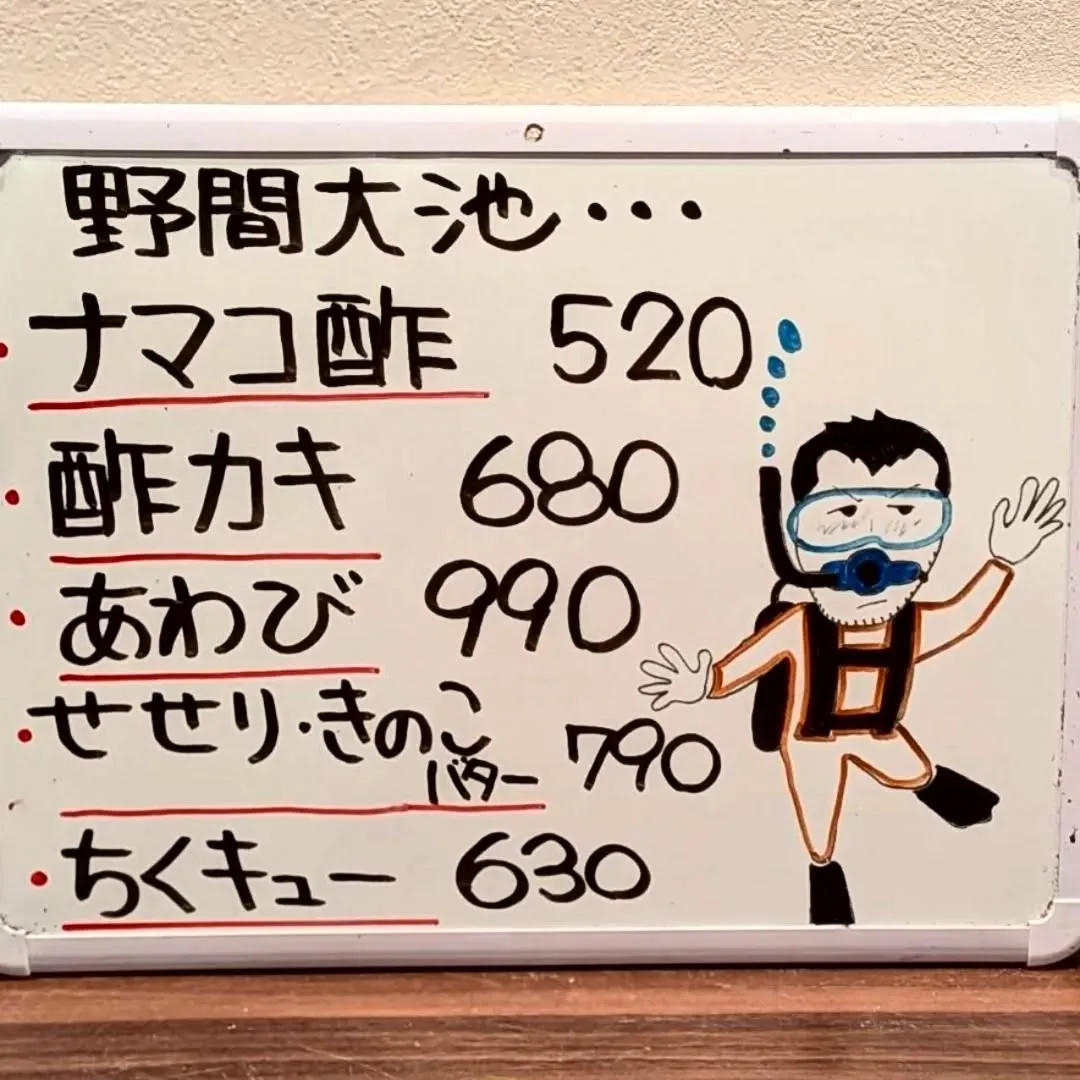 野間大池・・・
・ナマコ酢 520
・酢カキ 680
・あわび 990
・せせり・きのこバター 790
・ちくキュー 630